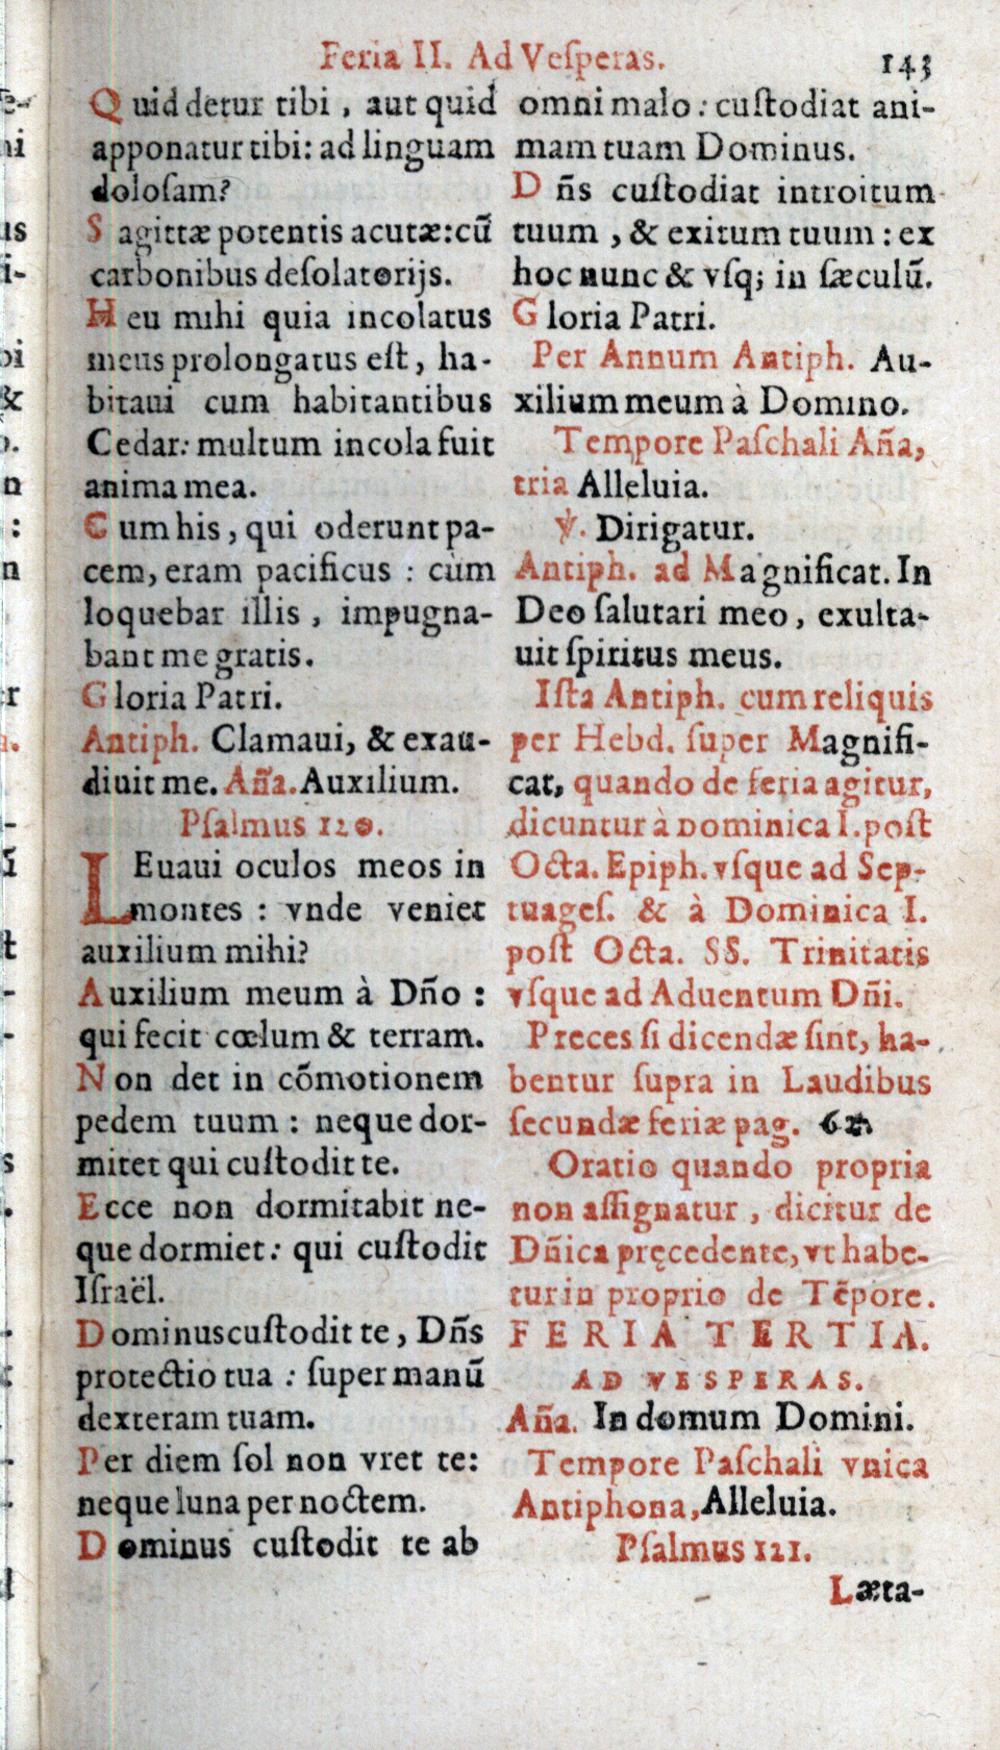 Feria II. Ad Veſperas. 143
Quid detur tibi, aut quid
apponatur tibi: ad linguam
doloſam?
Sagittæ potentis acutæ: cū
carbonibus deſolatorijs.
Heu mihi quia incolatus
meus prolongatus eſt, ha-
bitaui cum habitantibus
Cedar: multum incola fuit
anima mea.
Cum his, qui oderunt pa-
cem, eram pacificus : cùm
loquebar illis, impugna-
bant me gratis.
Gloria Patri.
Antiph. Clamaui, & exau-
diuit me. Aña. Auxilium.
Pſalmus 120.
LEuaui oculos meos in
montes : vnde veniet
auxilium mihi?
Auxilium meum à Dño :
qui fecit cœlum & terram.
Non det in cõmotionem
pedem tuum : neque dor-
mitet qui cuſtodit te.
Ecce non dormitabit ne-
que dormiet: qui cuſtodit
Iſraël.
Dominus cuſtodit te, Dñs
protectio tua : ſuper manū
dexteram tuam.
Per diem ſol non vret te:
neque luna per noctem.
Dominus cuſtodit te ab
omni malo: cuſtodiat ani-
mam tuam Dominus.
Dñs cuſtodiat introitum
tuum, & exitum tuum : ex
hoc nunc & vſq; in ſæculū.
Gloria Patri.
Per Annum Antiph. Au-
xilium meum à Domino.
Tempore Paſchali Aña,
tria Alleluia.
℣. Dirigatur.
Antiph. ad Magnificat. In
Deo ſalutari meo, exulta-
uit ſpiritus meus.
Iſta Antiph. cum reliquis
per Hebd. ſuper Magnifi-
cat, quando de feria agitur,
dicuntur à Dominica I. poſt
Octa. Epiph. vſque ad Sep-
tuageſ. & à Dominica I.
poſt Octa. SS. Trinitatis
vſque ad Aduentum Dñi.
Preces ſi dicendæ ſint, ha-
bentur ſupra in Laudibus
ſecundæ feriæ pag.
Oratio quando propria
non aſſignatur, dicitur de
Dñica pręcedente, vt habe-
tur in proprio de Tēpore.
FERIA TERTIA.
AD VESPERAS.
Aña. In domum Domini.
Tempore Paſchali vnica
Antiphona, Alleluia.
Pſalmus 121.
Læta-